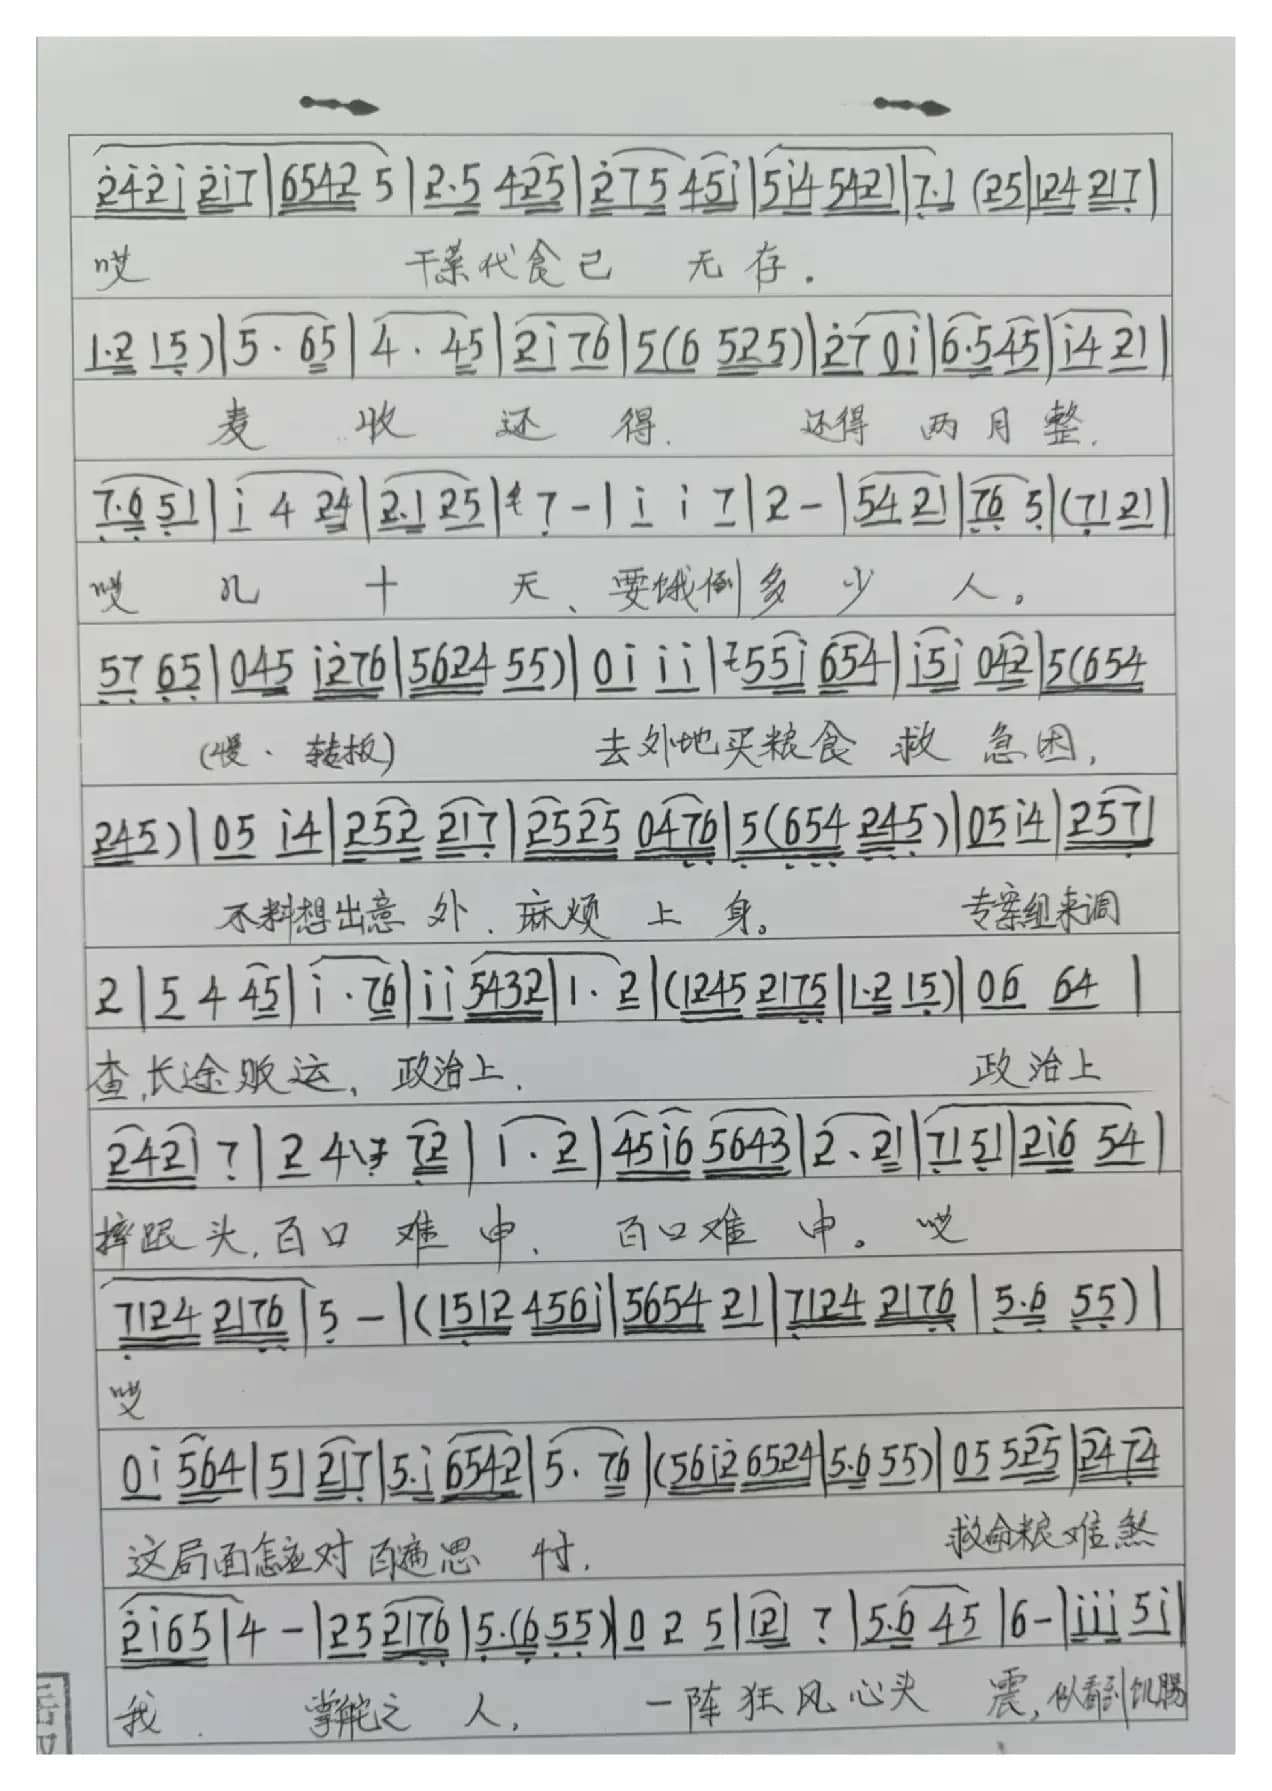 2421 217|6542 5|2.5 425|275 451|514 5421|7.1 (25|124 217|
哎 干菜代食已 无存.
1.2 15)|5 · 65|4 · 45|21 76|5(6 525)|27 01|6.545|14 21|
麦 收 还 得. 还得 两月整.
7.6 51|1 4 24|2.1 25|7-|1 1 7|2-|54 21|76 5|(71 21|
哎 几 十 天、要饿倒多 少 人。
57 65|045 1276|5624 55)|01 11|551 654|151 042|5(654
(慢·转板) 去外地买粮食 救 急困,
245)|05 14|252 217|2525 0476|5(654 245)|05 14|2571
不料想出意 外、麻烦 上 身。 专案组来调
2|5 4 45|1 · 76|11 5432|1 · 2|(1245 2175|1.2 15)|06 64|
查,长途贩运, 政治上, 政治上
2421 7|2 4 72|1 · 2|4516 5643|2 · 21|71 51|216 54|
摔跟头,百口 难 申、 百口难 申。 哎
7124 2176|5-|(1512 4561|5654 21|7124 2176|5.6 55)|
哎
01 564|51 217|5.1 6542|5 · 76|(5612 6524|5.6 55)|05 525|24 74
这局面怎应对百遍思 忖. 救命粮难煞
2165|4-|25 2176|5.(6 55)|0 2 5|121 7|5.6 45|6-|111 51|
我. 掌舵之 人, 一阵狂风心头 震,似看到饥肠